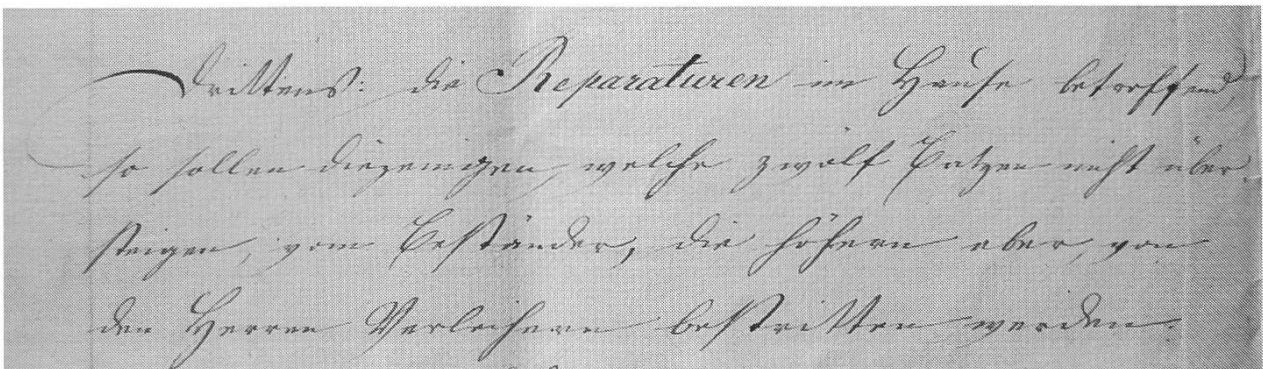 Drittens: die Reparaturen im Hause betreffend,
so sollen diejenigen, welche zwölf Batzen nicht über-
steigen, vom Beständer, die höhern aber, von
den Herren Verleihern bestritten werden.